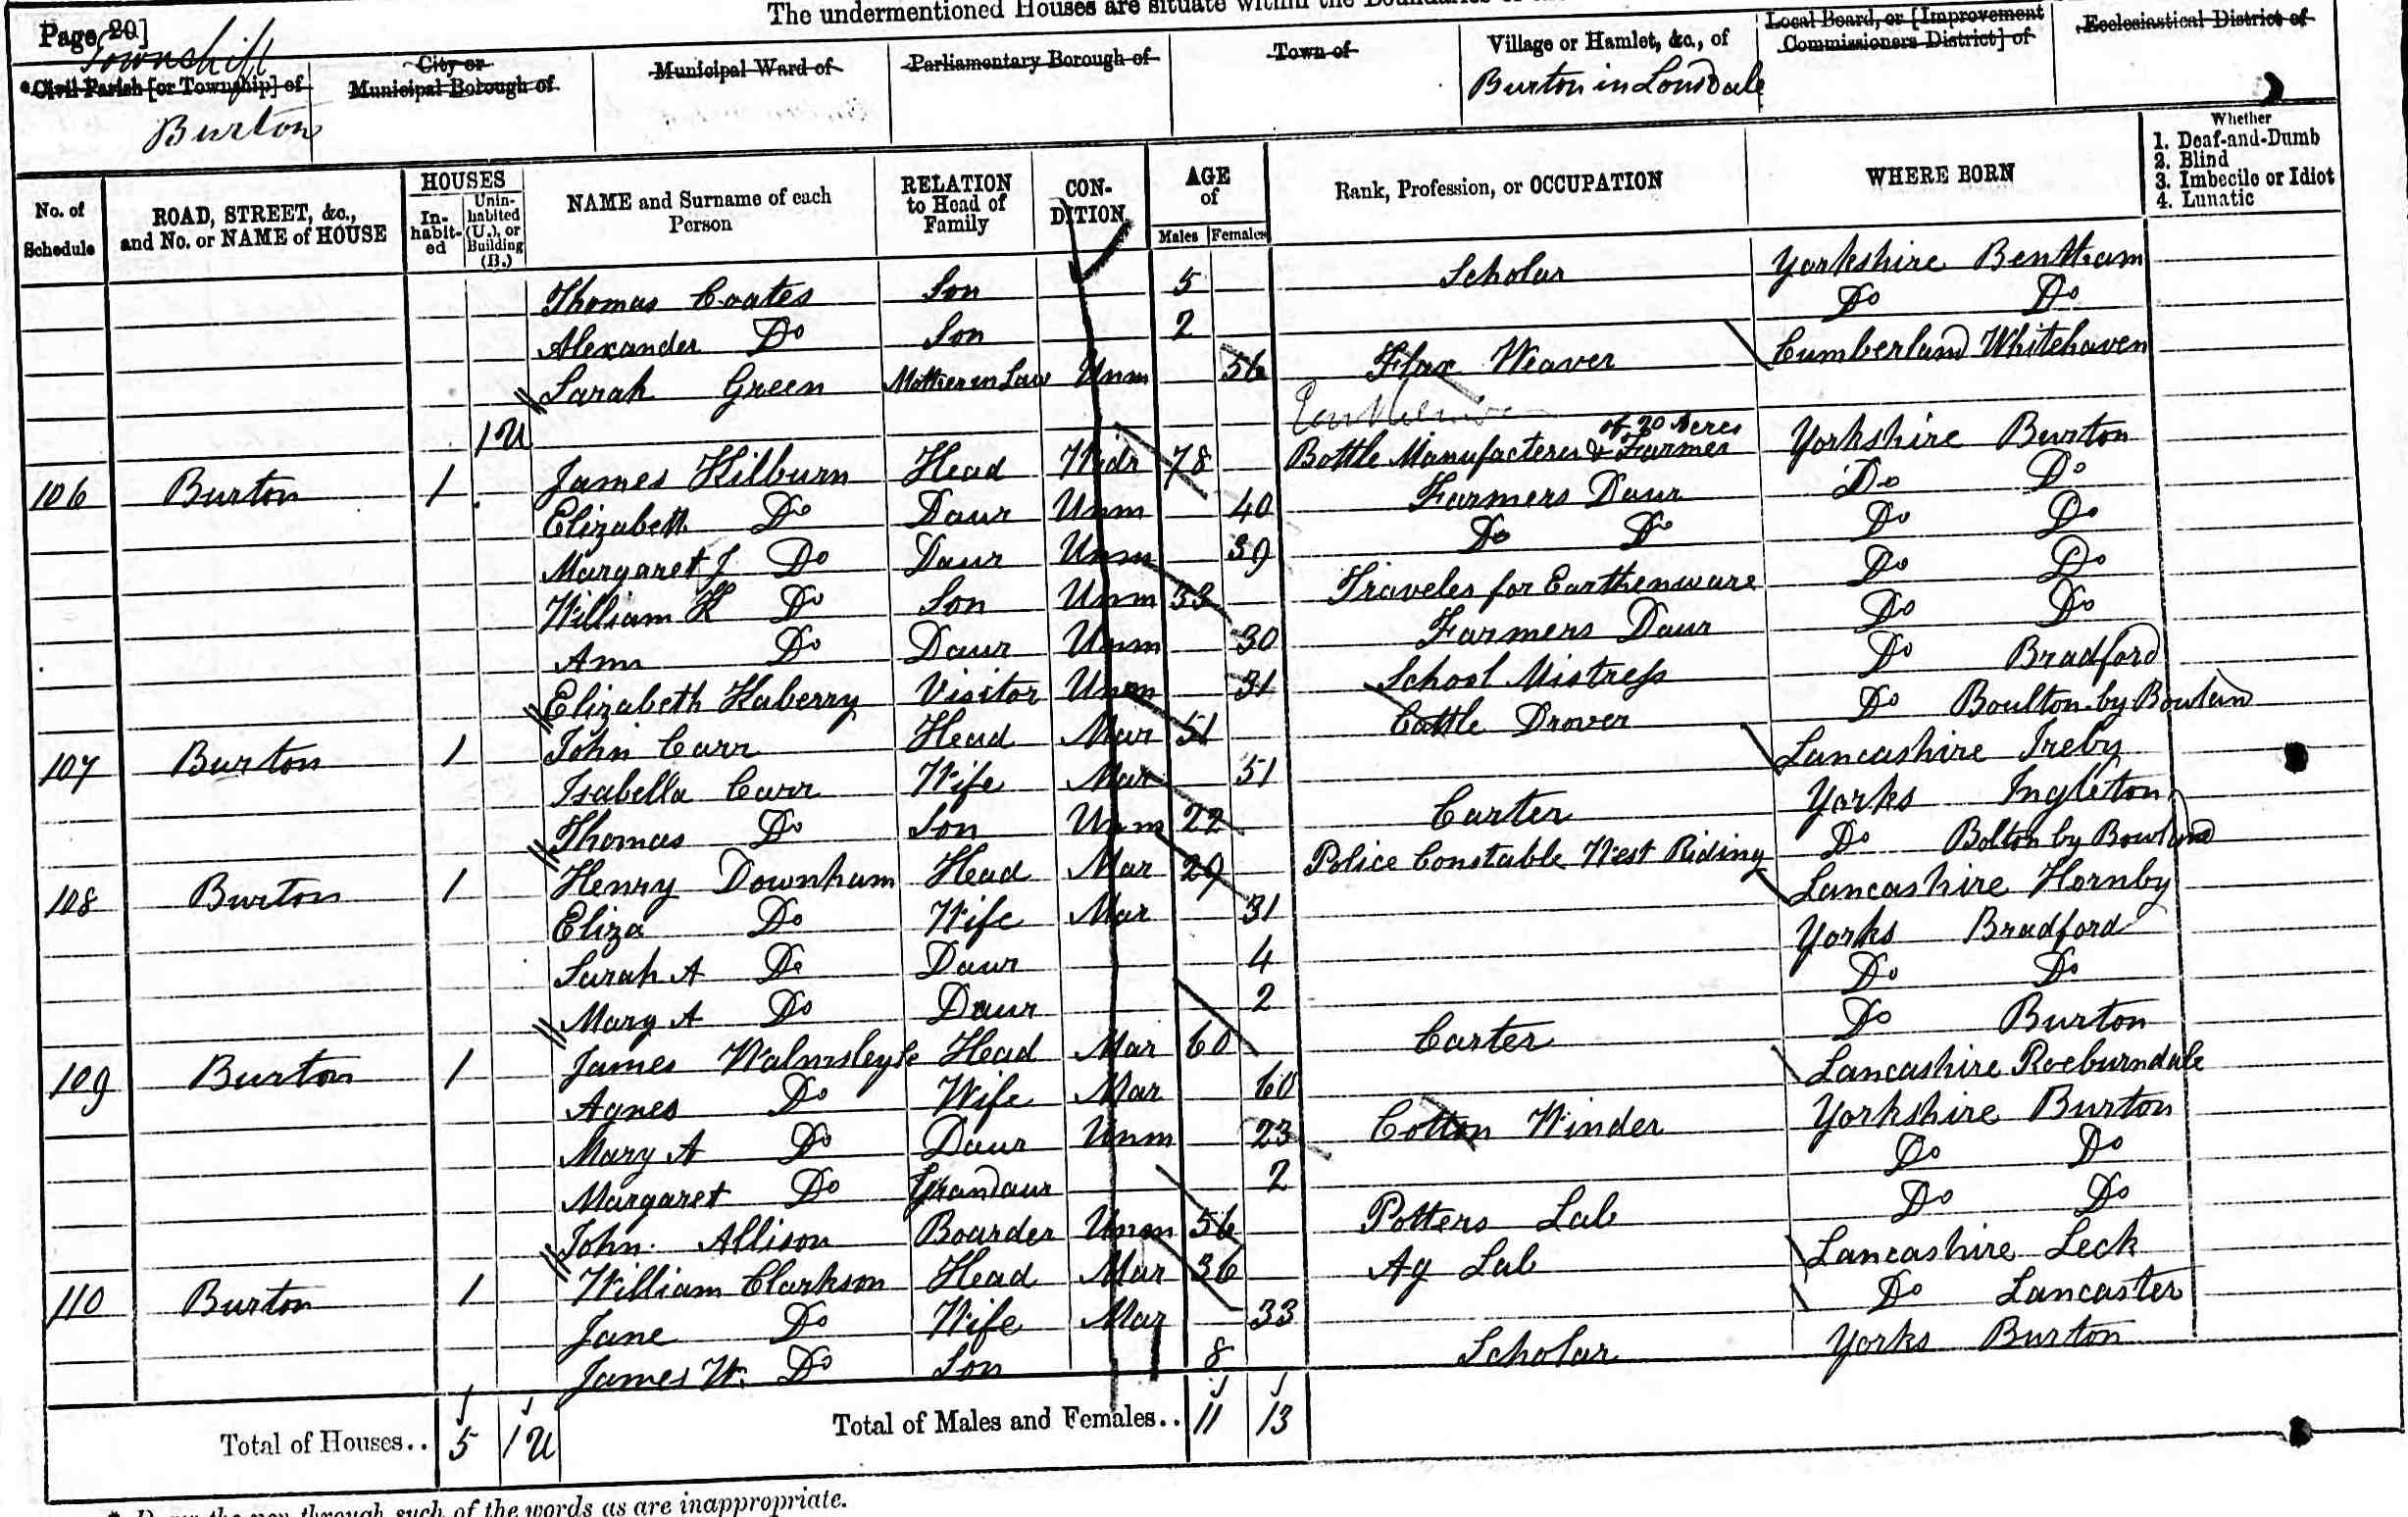 The undermentioned Houses are situate within the Boundaries of the
Page 20]
Township
*Civil Parish [or Township] of
Burton
City or Municipal Borough of
Municipal Ward of
Parliamentary Borough of
Town of
Village or Hamlet, &c., of
Burton in Lonsdale
Local Board, or [Improvement Commissioners District] of
Ecclesiastical District of
No. of Schedule
ROAD, STREET, &c., and No. or NAME of HOUSE
HOUSES
In-habit-ed
Unin-habited (U.), or Building (B.)
NAME and Surname of each Person
RELATION to Head of Family
CON-DITION
AGE of
Males Females
Rank, Profession, or OCCUPATION
WHERE BORN
Whether
1. Deaf-and-Dumb
2. Blind
3. Imbecile or Idiot
4. Lunatic
Thomas Coates Son 5 Scholar Yorkshire Bentham
Alexander Do Son 2 Do Do
Sarah Green Mother in Law Unm 56 Flax Weaver Cumberland Whitehaven
1 U
106 Burton 1 James Kilburn Head Widr 78 Bottle Manufacterer & Farmer of 20 Acres Yorkshire Burton
Elizabeth Do Daur Unm 40 Farmers Daur Do Do
Margaret J Do Daur Unm 39 Do Do Do Do
William K Do Son Unm 33 Traveler for Earthenware Do Do
Ann Do Daur Unm 30 Farmers Daur Do Do
Elizabeth Haberry Visitor Unm 31 School Mistress Do Bradford
107 Burton 1 John Carr Head Mar 51 Cattle Drover Do Boulton by Bowlan
Isabella Carr Wife Mar 51 Lancashire Ireby
Thomas Do Son Unm 22 Carter Yorks Ingleton
108 Burton 1 Henry Downham Head Mar 29 Police Constable West Riding Do Bolton by Bowland
Eliza Do Wife Mar 31 Lancashire Hornby
Sarah A Do Daur 4 Yorks Bradford
Mary A Do Daur 2 Do Do
109 Burton 1 James Walmsley Head Mar 60 Carter Do Burton
Agnes Do Wife Mar 60 Lancashire Roeburndale
Mary A Do Daur Unm 23 Cotton Winder Yorkshire Burton
Margaret Do Grandaur 2 Do Do
John Allison Boarder Unm 56 Potters Lab Do Do
110 Burton 1 William Clarkson Head Mar 36 Ag Lab Lancashire Leck
Jane Do Wife Mar 33 Do Lancaster
James W. Do Son 8 Scholar Yorks Burton
Total of Houses.. 5 1 U Total of Males and Females.. 11 13
such of the words as are inappropriate.